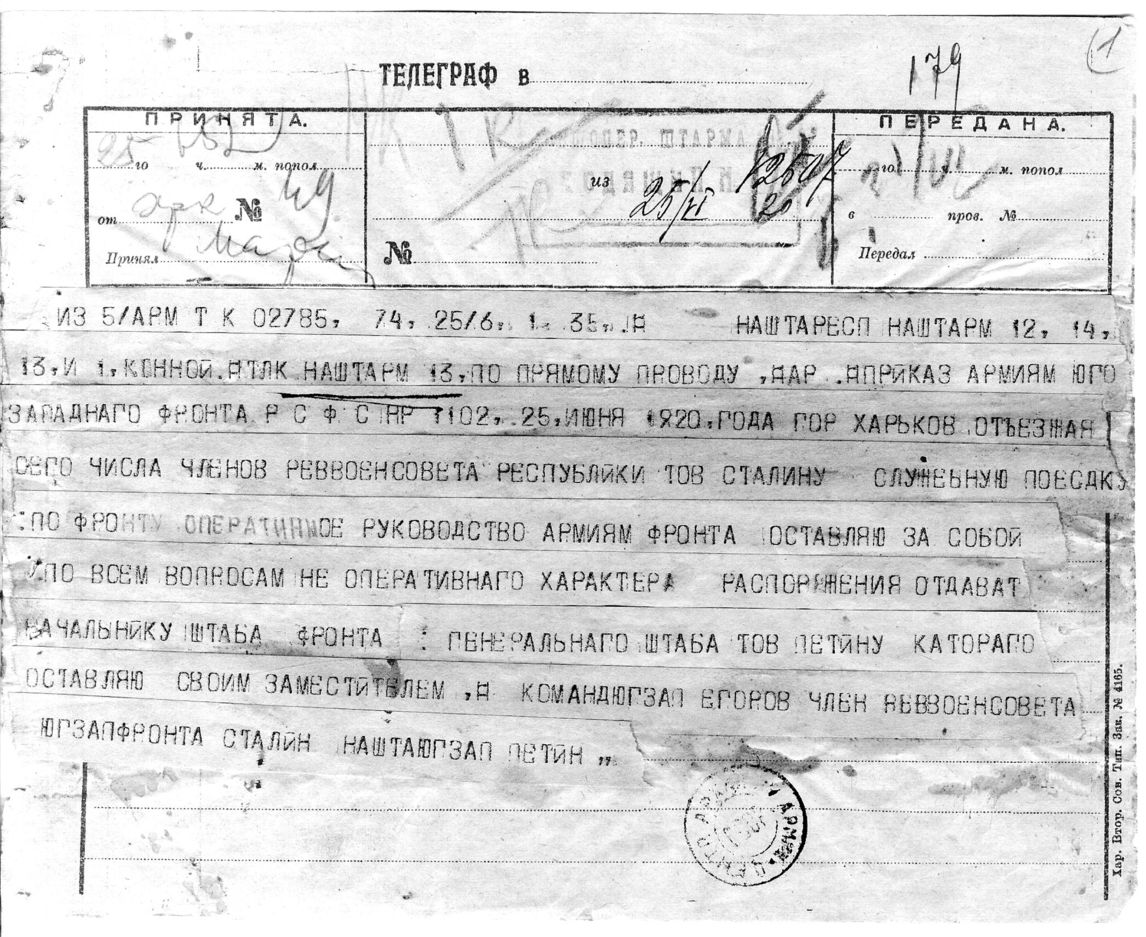 179
1
ТЕЛЕГРАФ в
ПРИНЯТА.
25 го ч. м. попол.
от № 49.
Принял
ОПЕР. ШТАРМА
из
25/VI 20
12507
№
ПЕРЕДАНА.
го ч. м. попол
в пров. №
Передал
ИЗ 5/АРМ Т К 02785, 74, 25/6, 1. 35, Я НАШТАРЕСП НАШТАРМ 12, 14,
13, И 1, КОННОЙ ЯТЛК НАШТАРМ 13, ПО ПРЯМОМУ ПРОВОДУ , ЯАР . ЯПРИКАЗ АРМИЯМ ЮГО
ЗАПАДНАГО ФРОНТА Р С Ф С НР 1102, 25, ИЮНЯ 1920, ГОДА ГОР ХАРЬКОВ ОТЪЕЗЖАЯ
СЕГО ЧИСЛА ЧЛЕНОВ РЕВВОЕНСОВЕТА РЕСПУБЛИКИ ТОВ СТАЛИНУ СЛУЖЕБНУЮ ПОЕСДКУ
:ПО ФРОНТУ ОПЕРАТИВМОЕ РУКОВОДСТВО АРМИЯМ ФРОНТА ОСТАВЛЯЮ ЗА СОБОЙ
ПО ВСЕМ ВОПРОСАМ НЕ ОПЕРАТИВНАГО ХАРАКТЕРА РАСПОРЯЖЕНИЯ ОТДАВАТ
НАЧАЛЬНИКУ ШТАБА ФРОНТА : ГЕНЕРАЛЬНАГО ШТАБА ТОВ ПЕТИНУ КАТОРАГО
ОСТАВЛЯЮ СВОИМ ЗАМЕСТИТЕЛЕМ , Я КОМАНДЮГЗАП ЕГОРОВ ЧЛЕН РЕВВОЕНСОВЕТА
ЮГЗАПФРОНТА СТАЛИН НАШТАЮГЗАП ПЕТИН „
АРМИИ
Хар. Втор. Сов. Тип. Зак. № 4165.